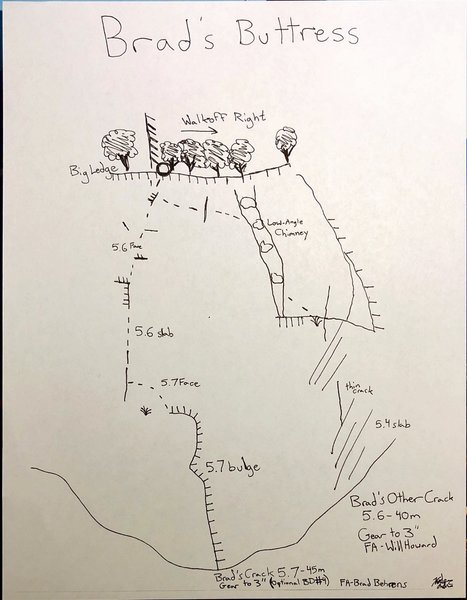 Brad's Buttress
Walkoff Right
Big Ledge
Low-Angle
Chimney
5.6 Face
5.6 slab
5.7 Face
thin
crack
5.4 slab
5.7 bulge
Brad's Other Crack
5.6-40m
Gear to 3"
FA-Will Howard
Brad's Crack 5.7-45m
Gear to 3" (optional BD#4)
FA-Brad Behrens